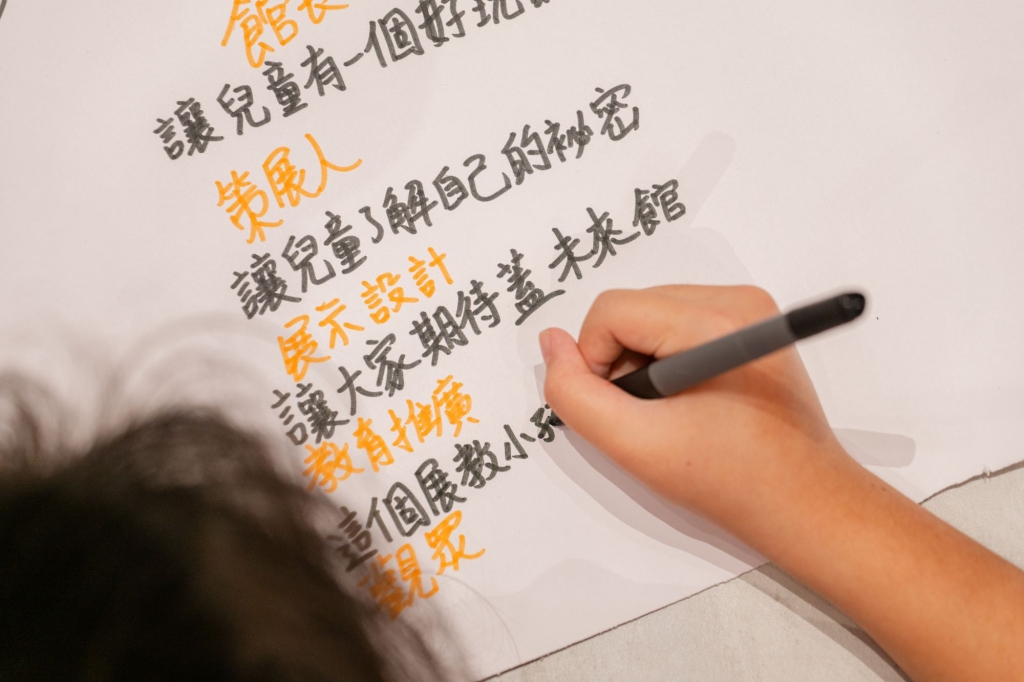 館長
讓兒童有一個好玩
策展人
讓兒童了解自己的祕密
展示設計
讓大家期待蓋未來館
教育推廣
這個展教小
觀眾